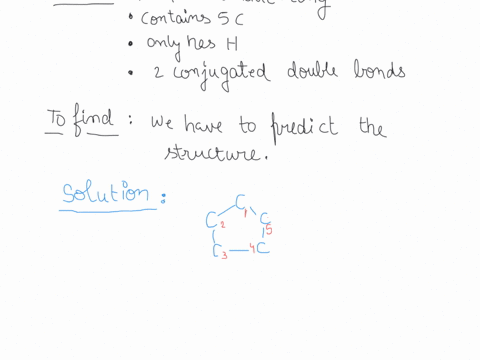 • contains 5 C
• only hes H
• 2 conjugated double bonds
To find : We have to predict the
structure.
Solution :
C 1
C 2 C 5
C 3 4 C